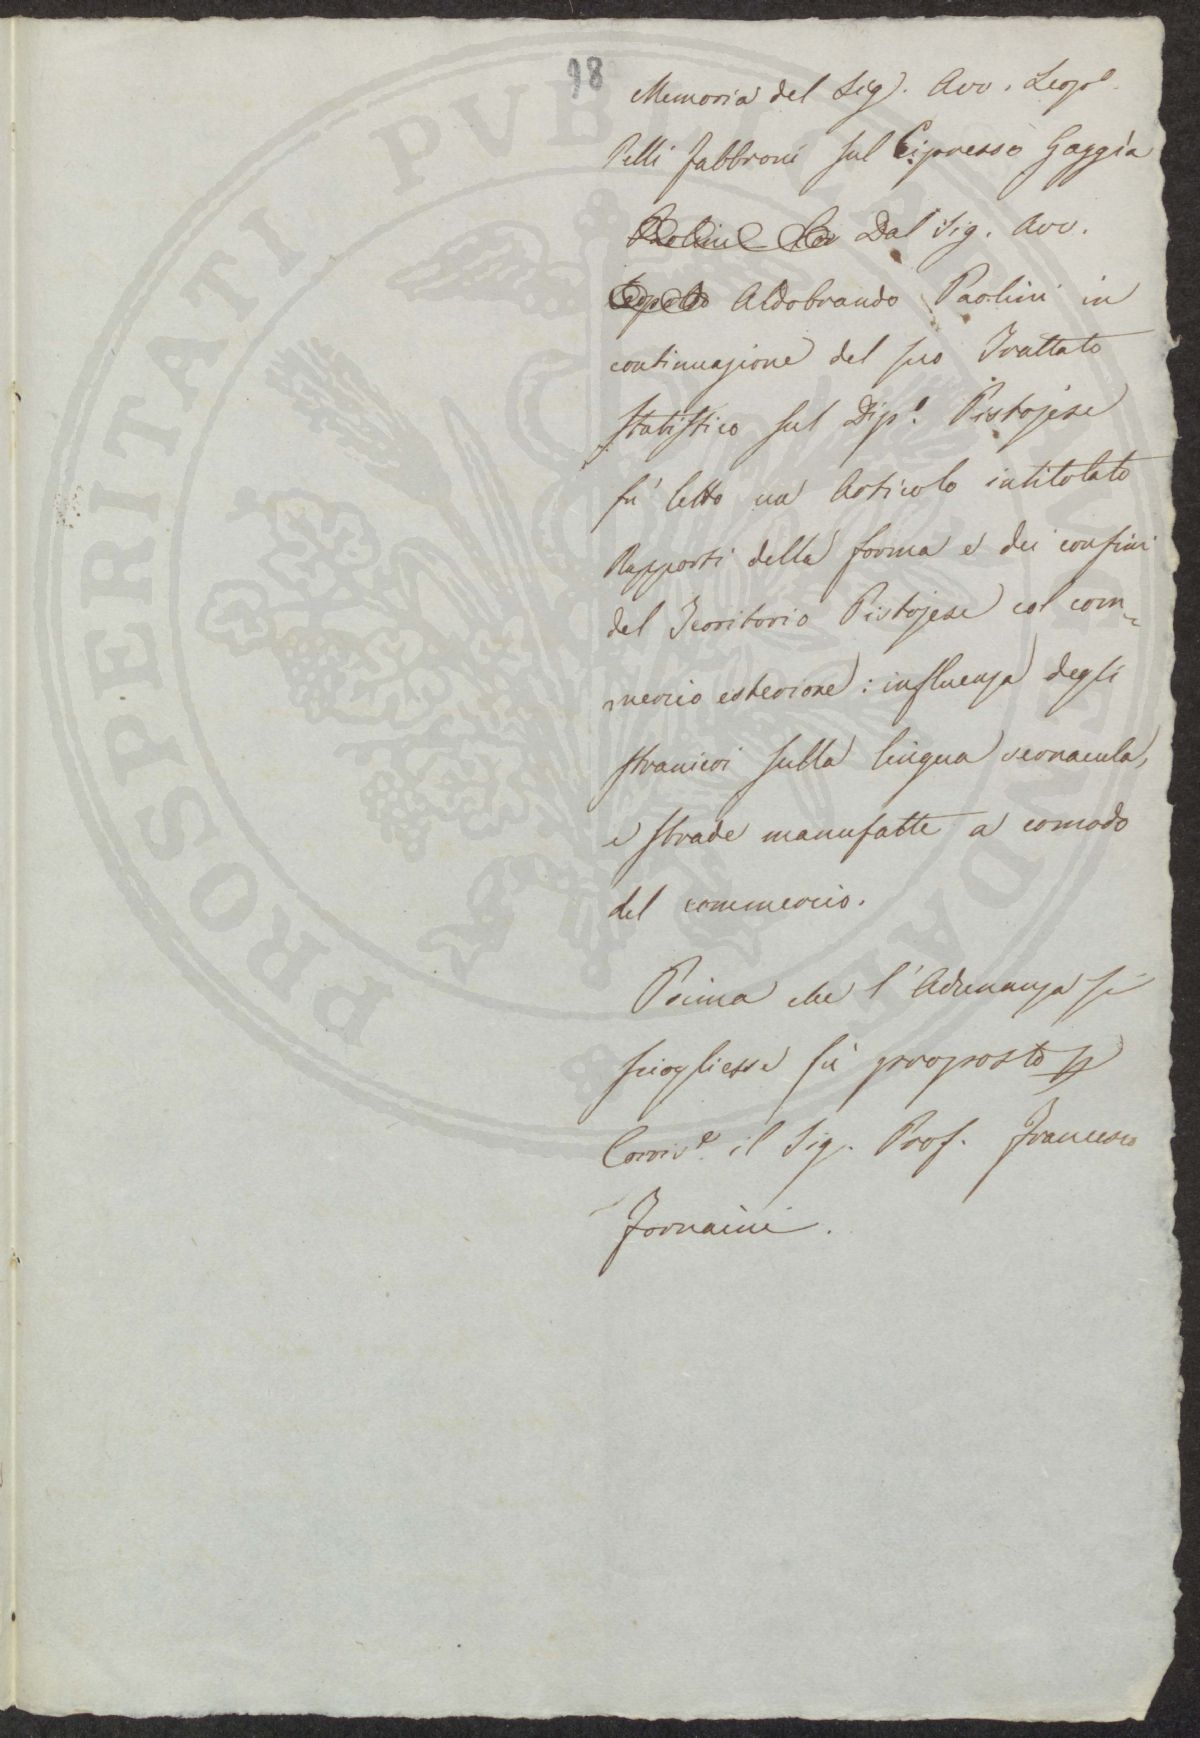 98
Memoria del Sig. Avv. Leopo.
Pelli Fabbroni sul Cipresso Gaggia
Paolini Dal Sig. Avv.
Leopoldo Aldobrando Paolini in
continuazione del suo Trattato
statistico sul Dip.o Pistojese
fu' letto un Articolo intitolato
Rapporti della forma e dei confini
del Territorio Pistojese col com-
mercio esteriore: influenza degli
stranieri sulla lingua vernacula,
e strade manufatte a comodo
del commercio.
Prima che l'Adunanza si
sciogliesse fù proposto p
Corris.e il Sig. Prof. Francesco
Fornaini.
PROSPERITATI PVBLICAE AVGENDAE